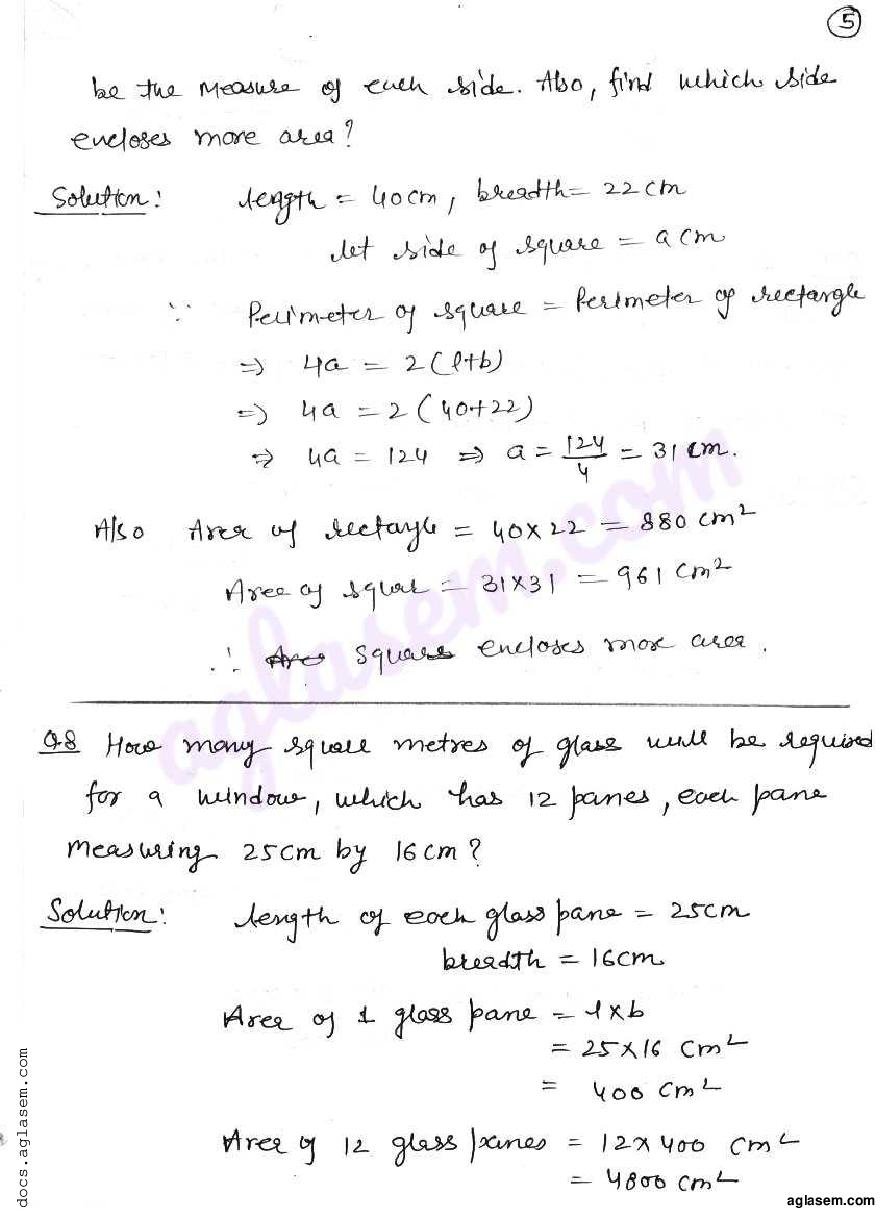 5
be the measure of each side. Also, find which side
encloses more area?
Solution: length = 40cm, breadth = 22cm
let side of square = a cm
∵ Perimeter of square = Perimeter of rectangle
⇒ 4a = 2(l+b)
⇒ 4a = 2(40+22)
⇒ 4a = 124 ⇒ a = 124/4 = 31 cm.
Also Area of rectangle = 40×22 = 880 cm²
Area of square = 31×31 = 961 cm²
∴ Square encloses more area.
Q8 How many square metres of glass will be required
for a window, which has 12 panes, each pane
measuring 25cm by 16cm?
Solution: length of each glass pane = 25cm
breadth = 16cm
Area of 1 glass pane = l×b
= 25×16 cm²
= 400 cm²
Area of 12 glass panes = 12×400 cm²
= 4800 cm²
aglasem.com
docs.aglasem.com
aglasem.com